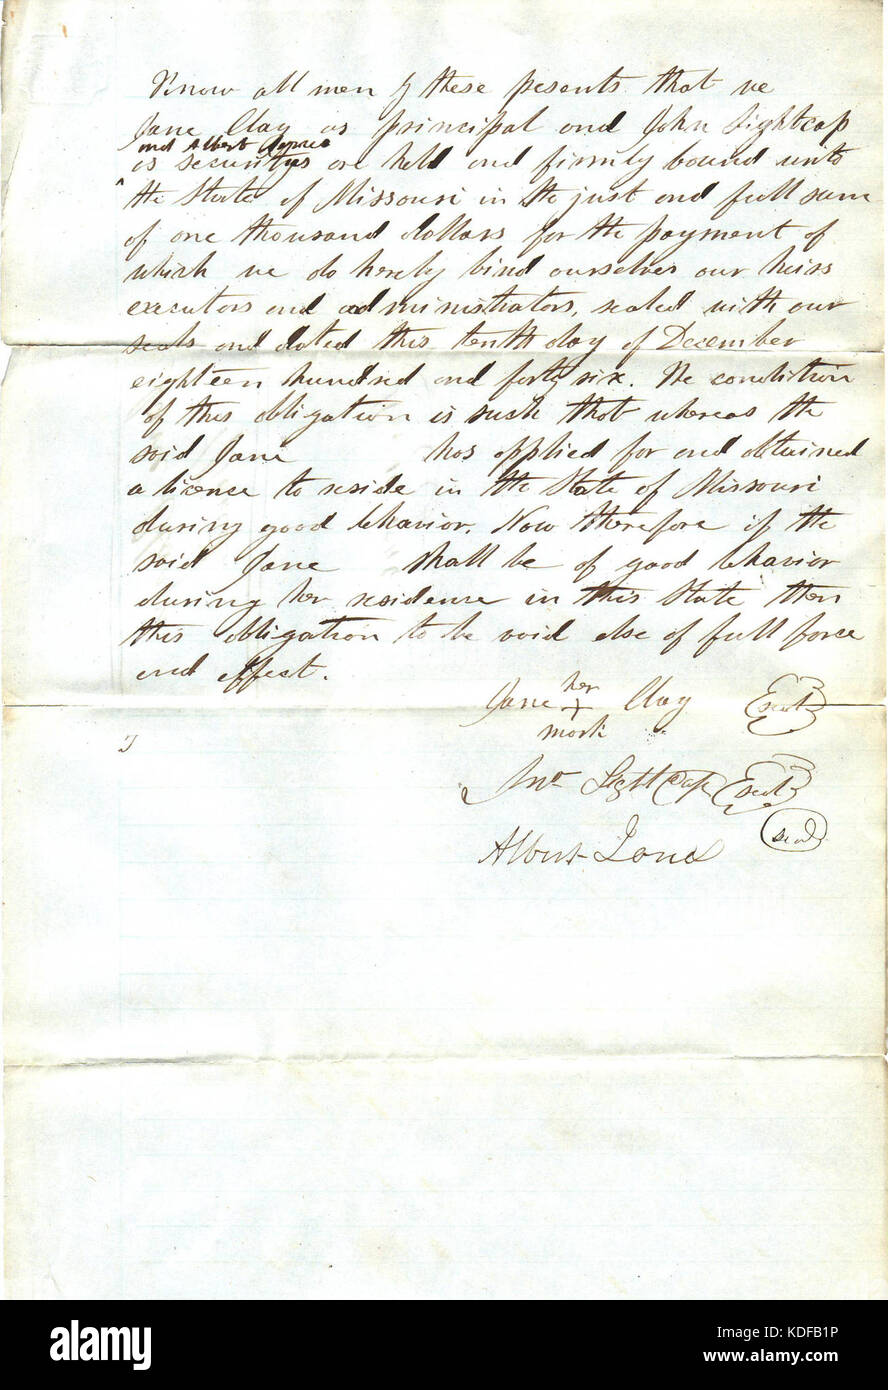 Know all men by these presents that we
Jane Clay as principal and John Lightcap
and Albert Jones
as securities are held and firmly bound unto
^ the State of Missouri in the just and full sum
of one thousand dollars for the payment of
which we do hereby bind ourselves our heirs
executors and administrators, sealed with our
seals and dated this tenth day of December
eighteen hundred and forty six. The condition
of this obligation is such that whereas the
said Jane has applied for and obtained
a licence to reside in the State of Missouri
during good behavior. Now therefore if the
said Jane shall be of good behavior
during her residence in this State then
this obligation to be void else of full force
and effect.
her
Jane + Clay seal
mark
Jno Lightcap seal
Albert Jones seal
alamy
Image ID: KDFB1P
www.alamy.com